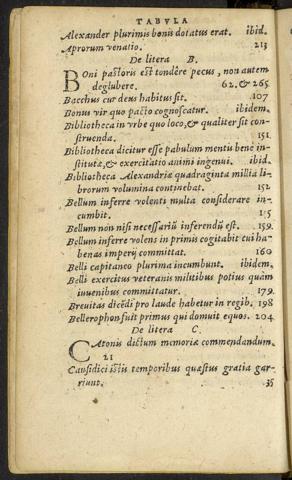 TABVLA
Alexander plurimis bonis dotatus erat. ibid.
Aprorum venatio. 213
De litera B.
BOni pastoris est tondere pecus, non autem
deglubere. 62. & 265
Bacchus cur deus habitus sit. 107
Bonus vir quo pacto cognoscatur. ibidem.
Bibliotheca in vrbe quo loco, & qualiter sit con-
struenda. 151.
Bibliotheca dicitur esse pabulum mentis bene in-
stitutæ, & exercitatio animi ingenui. ibid.
Bibliotheca Alexandriæ quadraginta millia li-
brorum volumina continebat. 152
Bellum inferre volenti multa considerare in-
cumbit. 115
Bellum non nisi necessariũ inferendũ est. 159.
Bellum inferre volens in primis cogitabit cui ha-
benas imperij committat. 160
Belli capitaneo plurima incumbunt. ibidem.
Belli exercitus veteranis militibus potius quàm
iuuenibus committatur. 179.
Breuitas dicẽdi pro laude habetur in regib. 198
Bellerophon fuit primus qui domuit equos. 204
De litera C.
CAtonis dictum memoriæ commendandum.
21
Causidici istis temporibus quæstus gratia gar-
riunt. 35